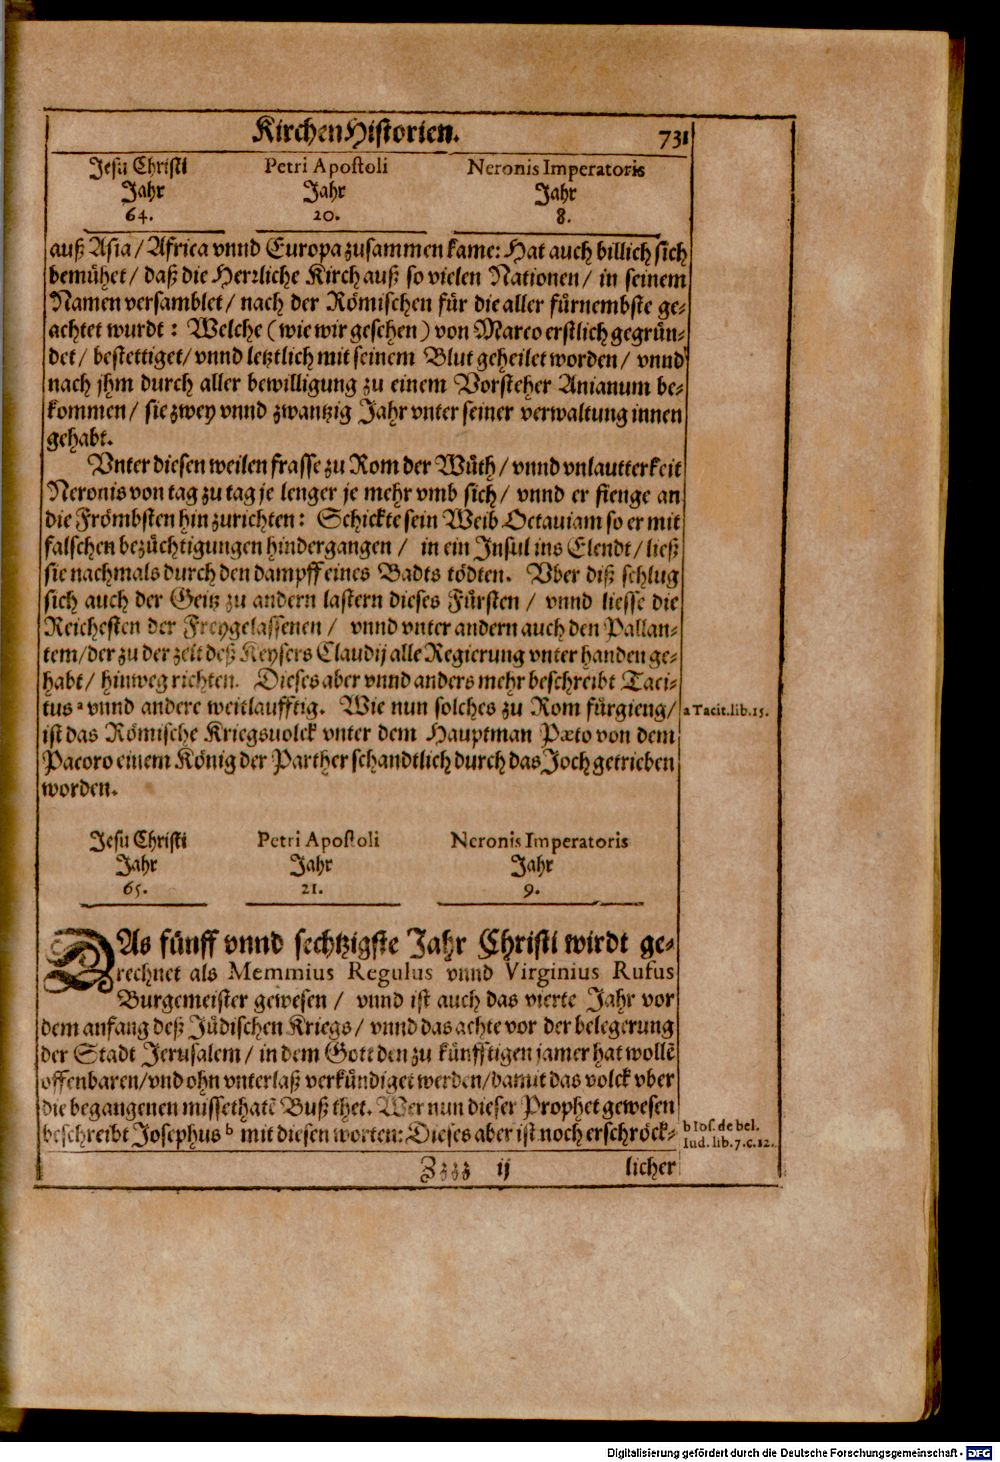 KirchenHistorien. 731
Jesu Christi Petri Apostoli Neronis Imperatoris
Jahr Jahr Jahr
64. 20. 8.
auß Asia / Africa vnnd Europa zusammen kame: Hat auch billich sich
bemühet / daß die Herzliche Kirch auß so vielen Nationen / in seinem
Namen versamblet / nach der Römischen für die aller fürnembste ge-
achtet wurdt: Welche (wie wir gesehen) von Marco erstlich gegrün-
det / bestettiget / vnnd letztlich mit seinem Blut geheilet worden / vnnd
nach jhm durch aller bewilligung zu einem Vorsteher Anianum be-
kommen / sie zwey vnnd zwantzig Jahr vnter seiner verwaltung innen
gehabt.
Vnter diesen weilen frasse zu Rom der Wüth / vnnd vnlautterkeit
Neronis von tag zu tag je lenger je mehr vmb sich / vnnd er fienge an
die Frömbsten hin zurichten: Schickte sein Weib Octauiam so er mit
falschen bezüchtigungen hindergangen / in ein Insul ins Elendt / ließ
sie nachmals durch den dampff eines Badts tödten. Vber diß schlug
sich auch der Geitz zu andern lastern dieses Fürsten / vnnd liesse die
Reichesten der Freygelassenen / vnnd vnter andern auch den Pallan-
tem / der zu der zeit deß Keysers Claudij alle Regierung vnter handen ge-
habt / hinweg richten. Dieses aber vnnd anders mehr beschreibt Taci-
tus a vnnd andere weitlaufftig. Wie nun solches zu Rom fürgieng /
a Tacit. lib. 15.
ist das Römische Kriegsuolck vnter dem Hauptman Pæto von dem
Pacoro einem König der Parther schandtlich durch das Joch getrieben
worden.
Jesu Christi Petri Apostoli Neronis Imperatoris
Jahr Jahr Jahr
65. 21. 9.
DAs fünff vnnd sechtzigste Jahr Christi wirdt ge-
rechnet als Memmius Regulus vnnd Virginius Rufus
Burgemeister gewesen / vnnd ist auch das vierte Jahr vor
dem anfang deß Jüdischen Kriegs / vnnd das achte vor der belegerung
der Stadt Jerusalem / in dem Gott den zu künfftigen jamer hat wollẽ
offenbaren / vnd ohn vnterlaß verkündiget werden / damit das volck vber
die begangenen missethatẽ Buß thet. Wer nun dieser Prophet gewesen
beschreibt Josephus b mit diesen worten: Dieses aber ist noch erschröck-
b Ios. de bel.
Iud. lib. 7. c. 12.
Zzzz ij licher
Digitalisierung gefördert durch die Deutsche Forschungsgemeinschaft - DFG